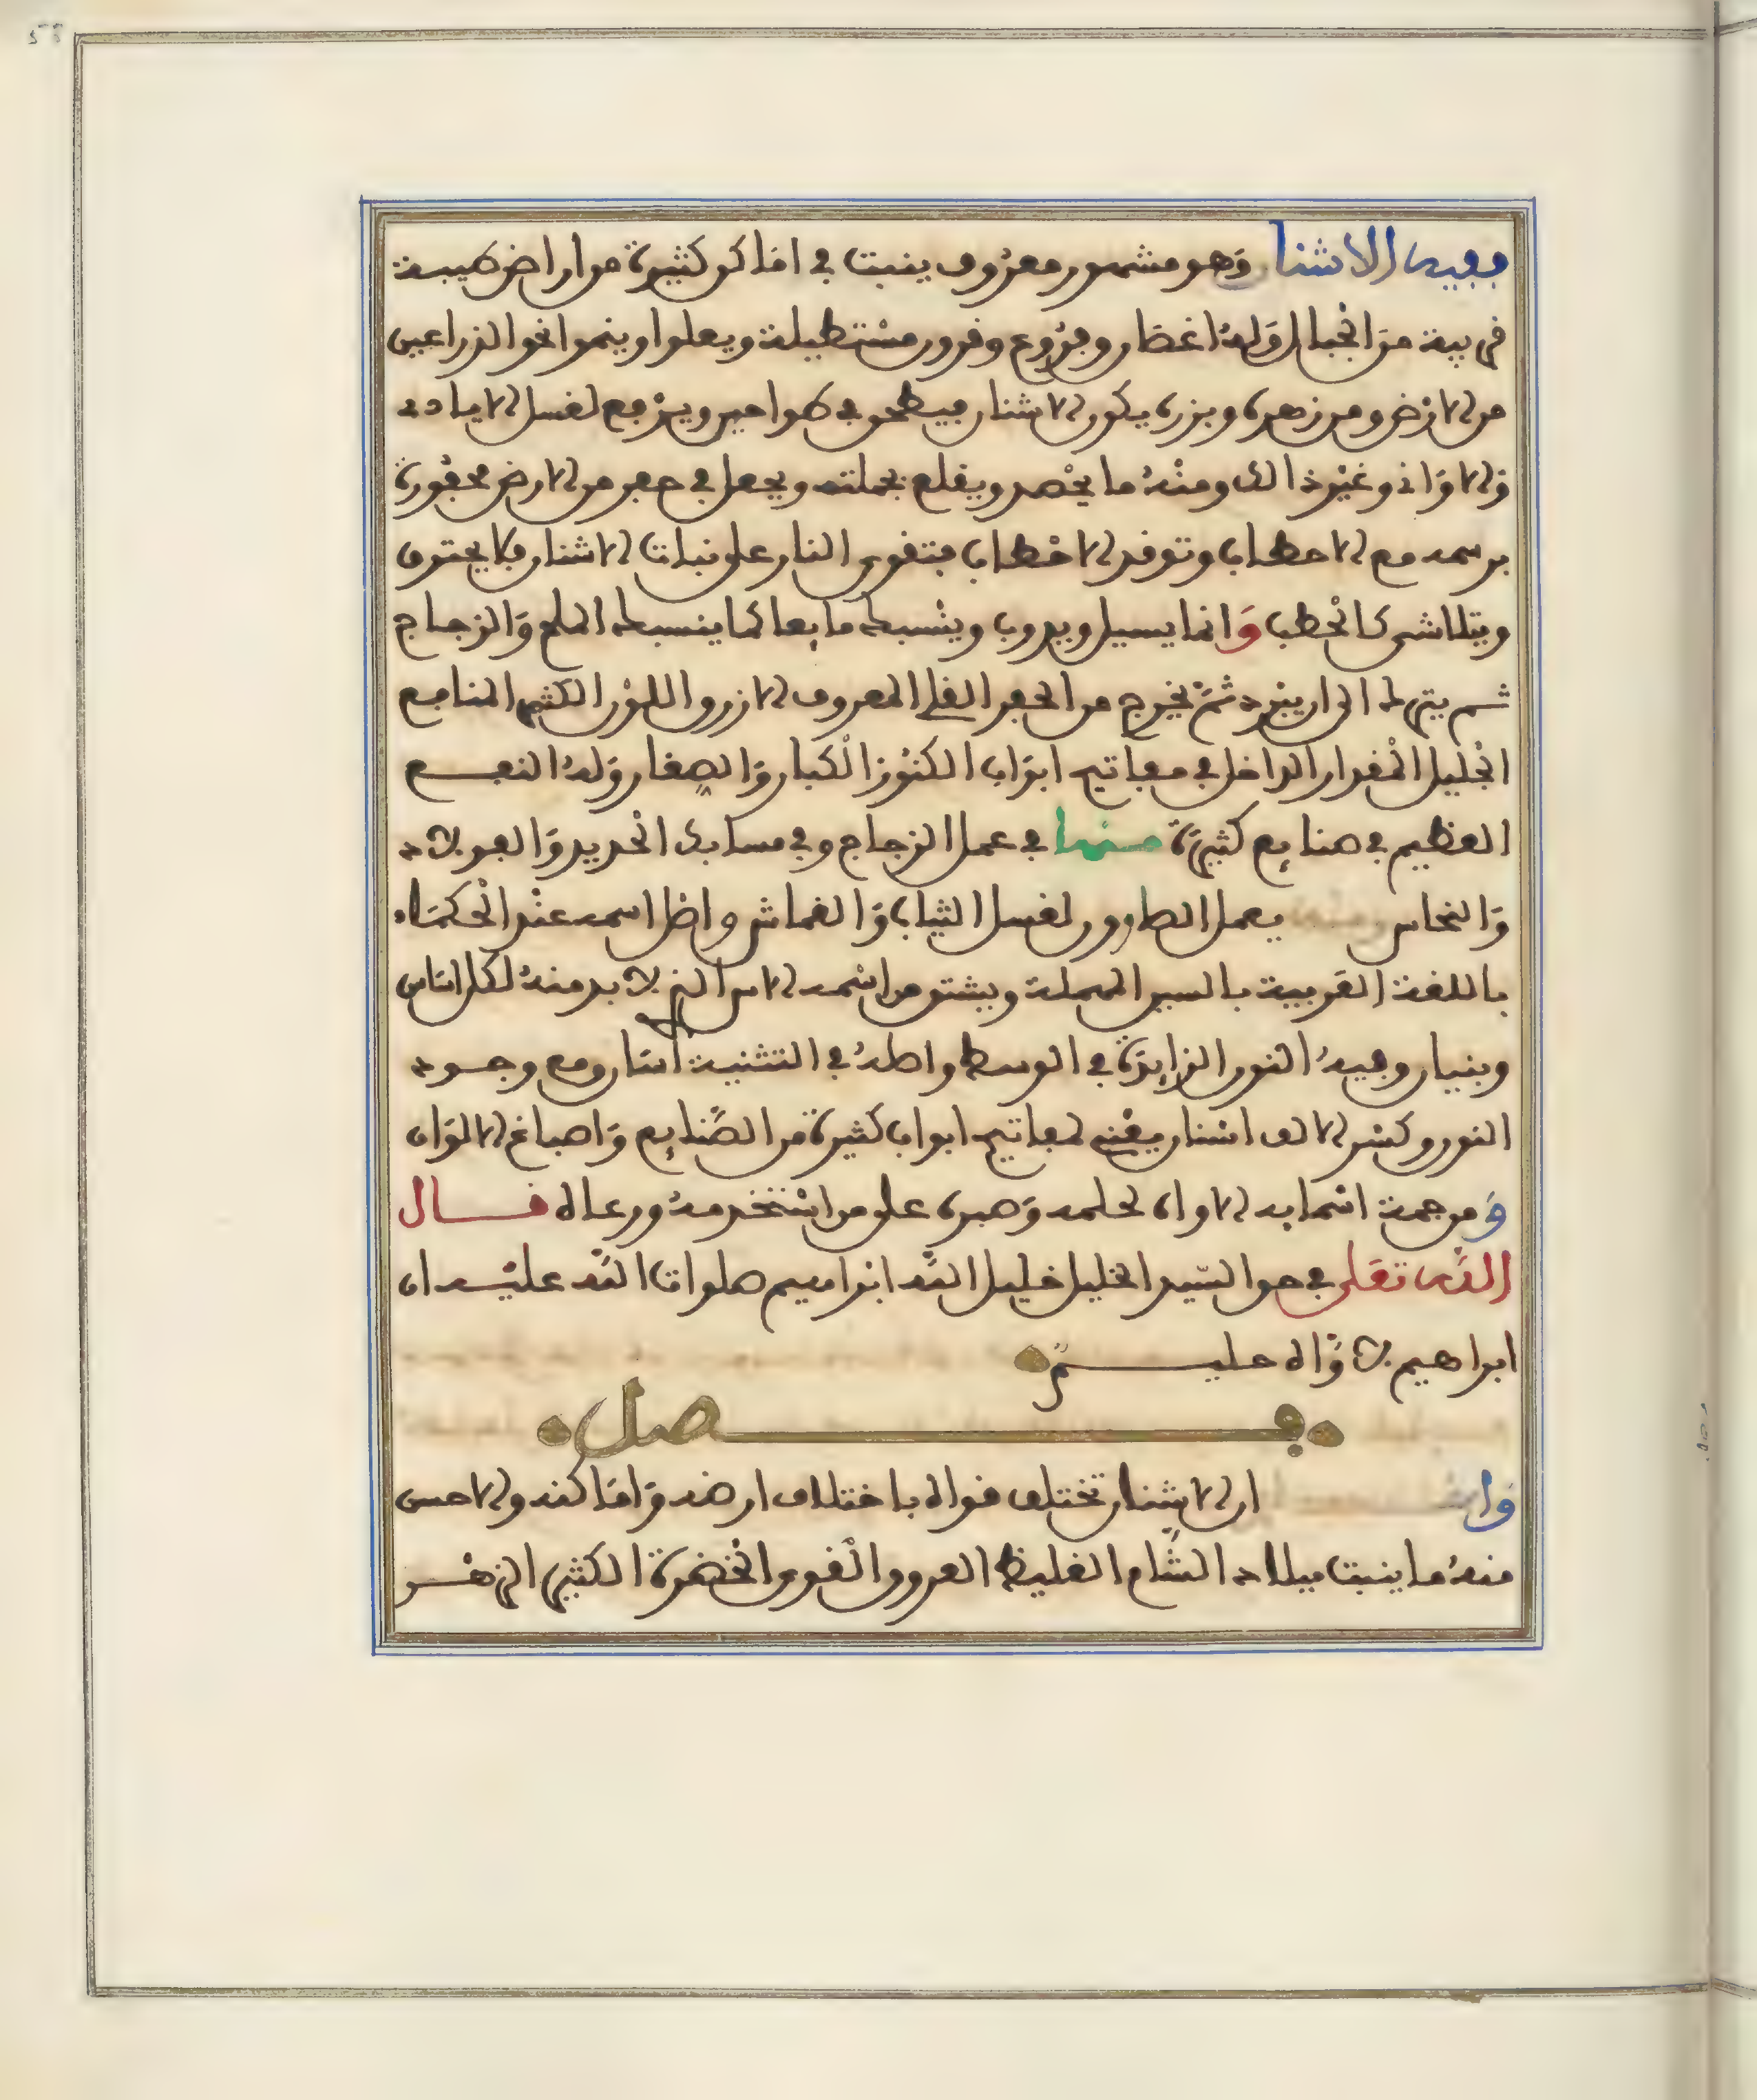 ففيه الاشنان وهو مشهور معروف ينبت في اماكن كثيرة من اراض طيبة
قريبة من الجبال وله اغصان وفروع وقرون مستطيلة ويعلوا وينموا نحوا لذراعين
من الارض ومن زهره وبزره يكون الاشنان فيطحن في طواحين ويرفع لغسل الايادى
والاوانى وغير ذالك ومنه ما يحصد ويقلع بجملته ويجعل في حفر من الارض محفورة
برسمه مع الاحطاب وتوقد الاحطاب فتقوى النار على نبات الاشنان فلا يحترق
ويتلاشى كالحطب وانما يسيل ويدوب وينسبك مايعا كما ينسبك الملح والزجاج
ثم يترك الى ان يبرد ثم يخرج من الحفر القلى المعروف الازرق اللون الكثير المنافع
الجليل المقدار الداخل في مفاتيح ابواب الكنوز الكبار والصغار وله النفع
العظيم في منافع كثيرة منها في عمل الزجاج وفي مسابك الحديد والفولاذ
والنحاس ومنه يعمل الصابون لغسل الثياب والقماش واصل اسمه عند الحكماء
باللغة العربية بالسين المهملة ويشتق من اسمه الاس الذى لا بد منه لكل اساس
وبنيان وفيه النون الزايدة في الوسط واصله في التثنية اسان ومع وجود
النون وكسر الالف اسنان يعنى لمفاتيح ابواب كثيرة من الصنايع واصباغ الالوان
ومن جهة اسمايه الاواه لحلمه وصبره على من استخدمه ورعاه قال
الله تعلى في حق السيد الخليل خليل الله ابراهيم صلوات الله عليه ان
ابراهيم لاواه حليم
فصل
ان الاشنان تختلف قواه باختلاف ارضه واماكنه والاحسن
منه ما ينبت ببلاد الشام الغليظ العروق القوى الخضرة الكثير الزهر